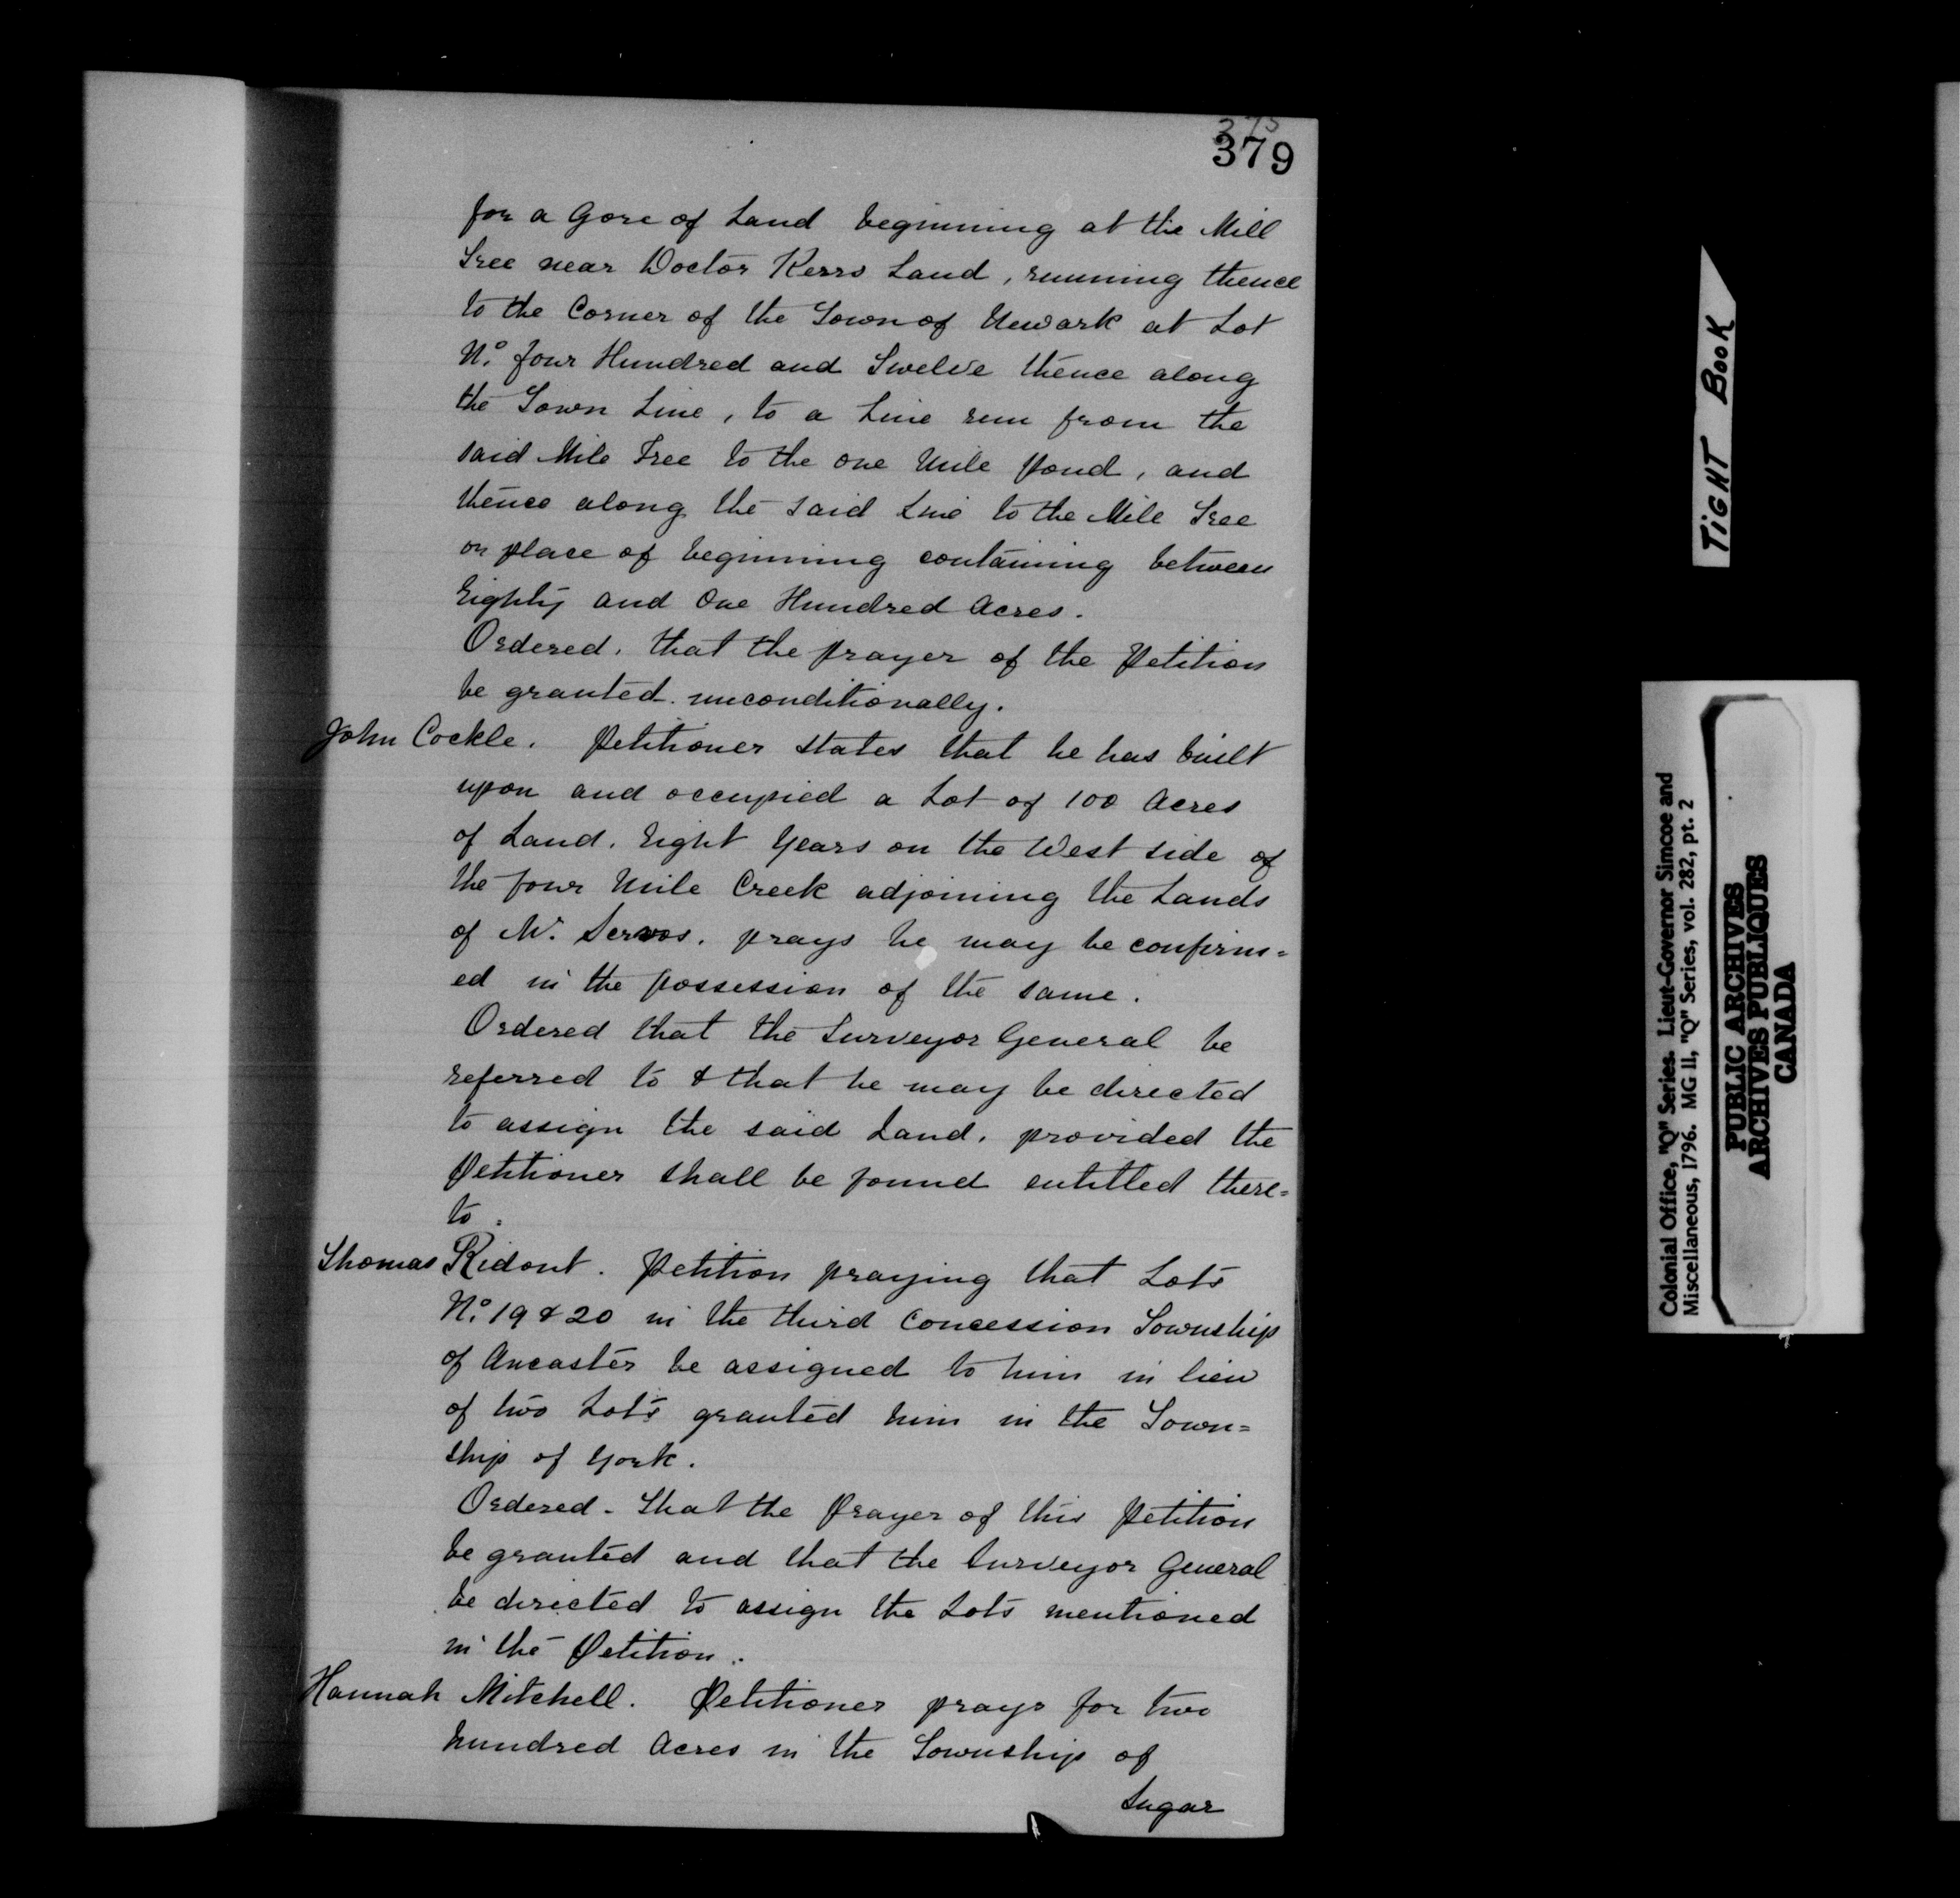 375
379
for a Gore of Land beginning at the Mill
Tree near Doctor Kerrs Land, running thence
to the Corner of the Town of Newark at Lot
No. four Hundred and Twelve thence along
the Town Line, to a Line run from the
said Mile Tree to the one Mile Pond, and
thence along the said Line to the Mile Tree
or place of beginning containing between
Eighty and One Hundred Acres.
Ordered, that the prayer of the Petition
be granted unconditionally.
John Cockle. Petitioner states that he has built
upon and occupied a Lot of 100 Acres
of Land, Eight Years on the West side of
the four Mile Creek adjoining the Lands
of Mr. Servos, prays he may be confirm=
ed in the possession of the same.
Ordered that the Surveyor General be
referred to & that he may be directed
to assign the said Land, provided the
Petitioner shall be found entitled there=
to.
Thomas Ridout. Petition praying that Lots
No. 19 & 20 in the third Concession Township
of Ancaster be assigned to him in lieu
of two Lots granted him in the Town=
ship of York.
Ordered - That the Prayer of this Petition
be granted and that the Surveyor General
be directed to assign the Lots mentioned
in the Petition.
Hannah Mitchell. Petitioner prays for two
hundred Acres in the Township of
Sugar
TIGHT BOOK
Colonial Office, "Q" Series. Lieut-Governor Simcoe and
Miscellaneous, 1796. MG 11, "Q" Series, vol. 282, pt. 2
PUBLIC ARCHIVES
ARCHIVES PUBLIQUES
CANADA